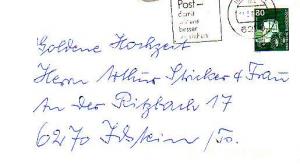 Post-
damit
besser
80
Goldene Hochzeit
Herrn Arthur Stricker & Frau
An der Ritzbach 17
6270 Idstein / Ts.